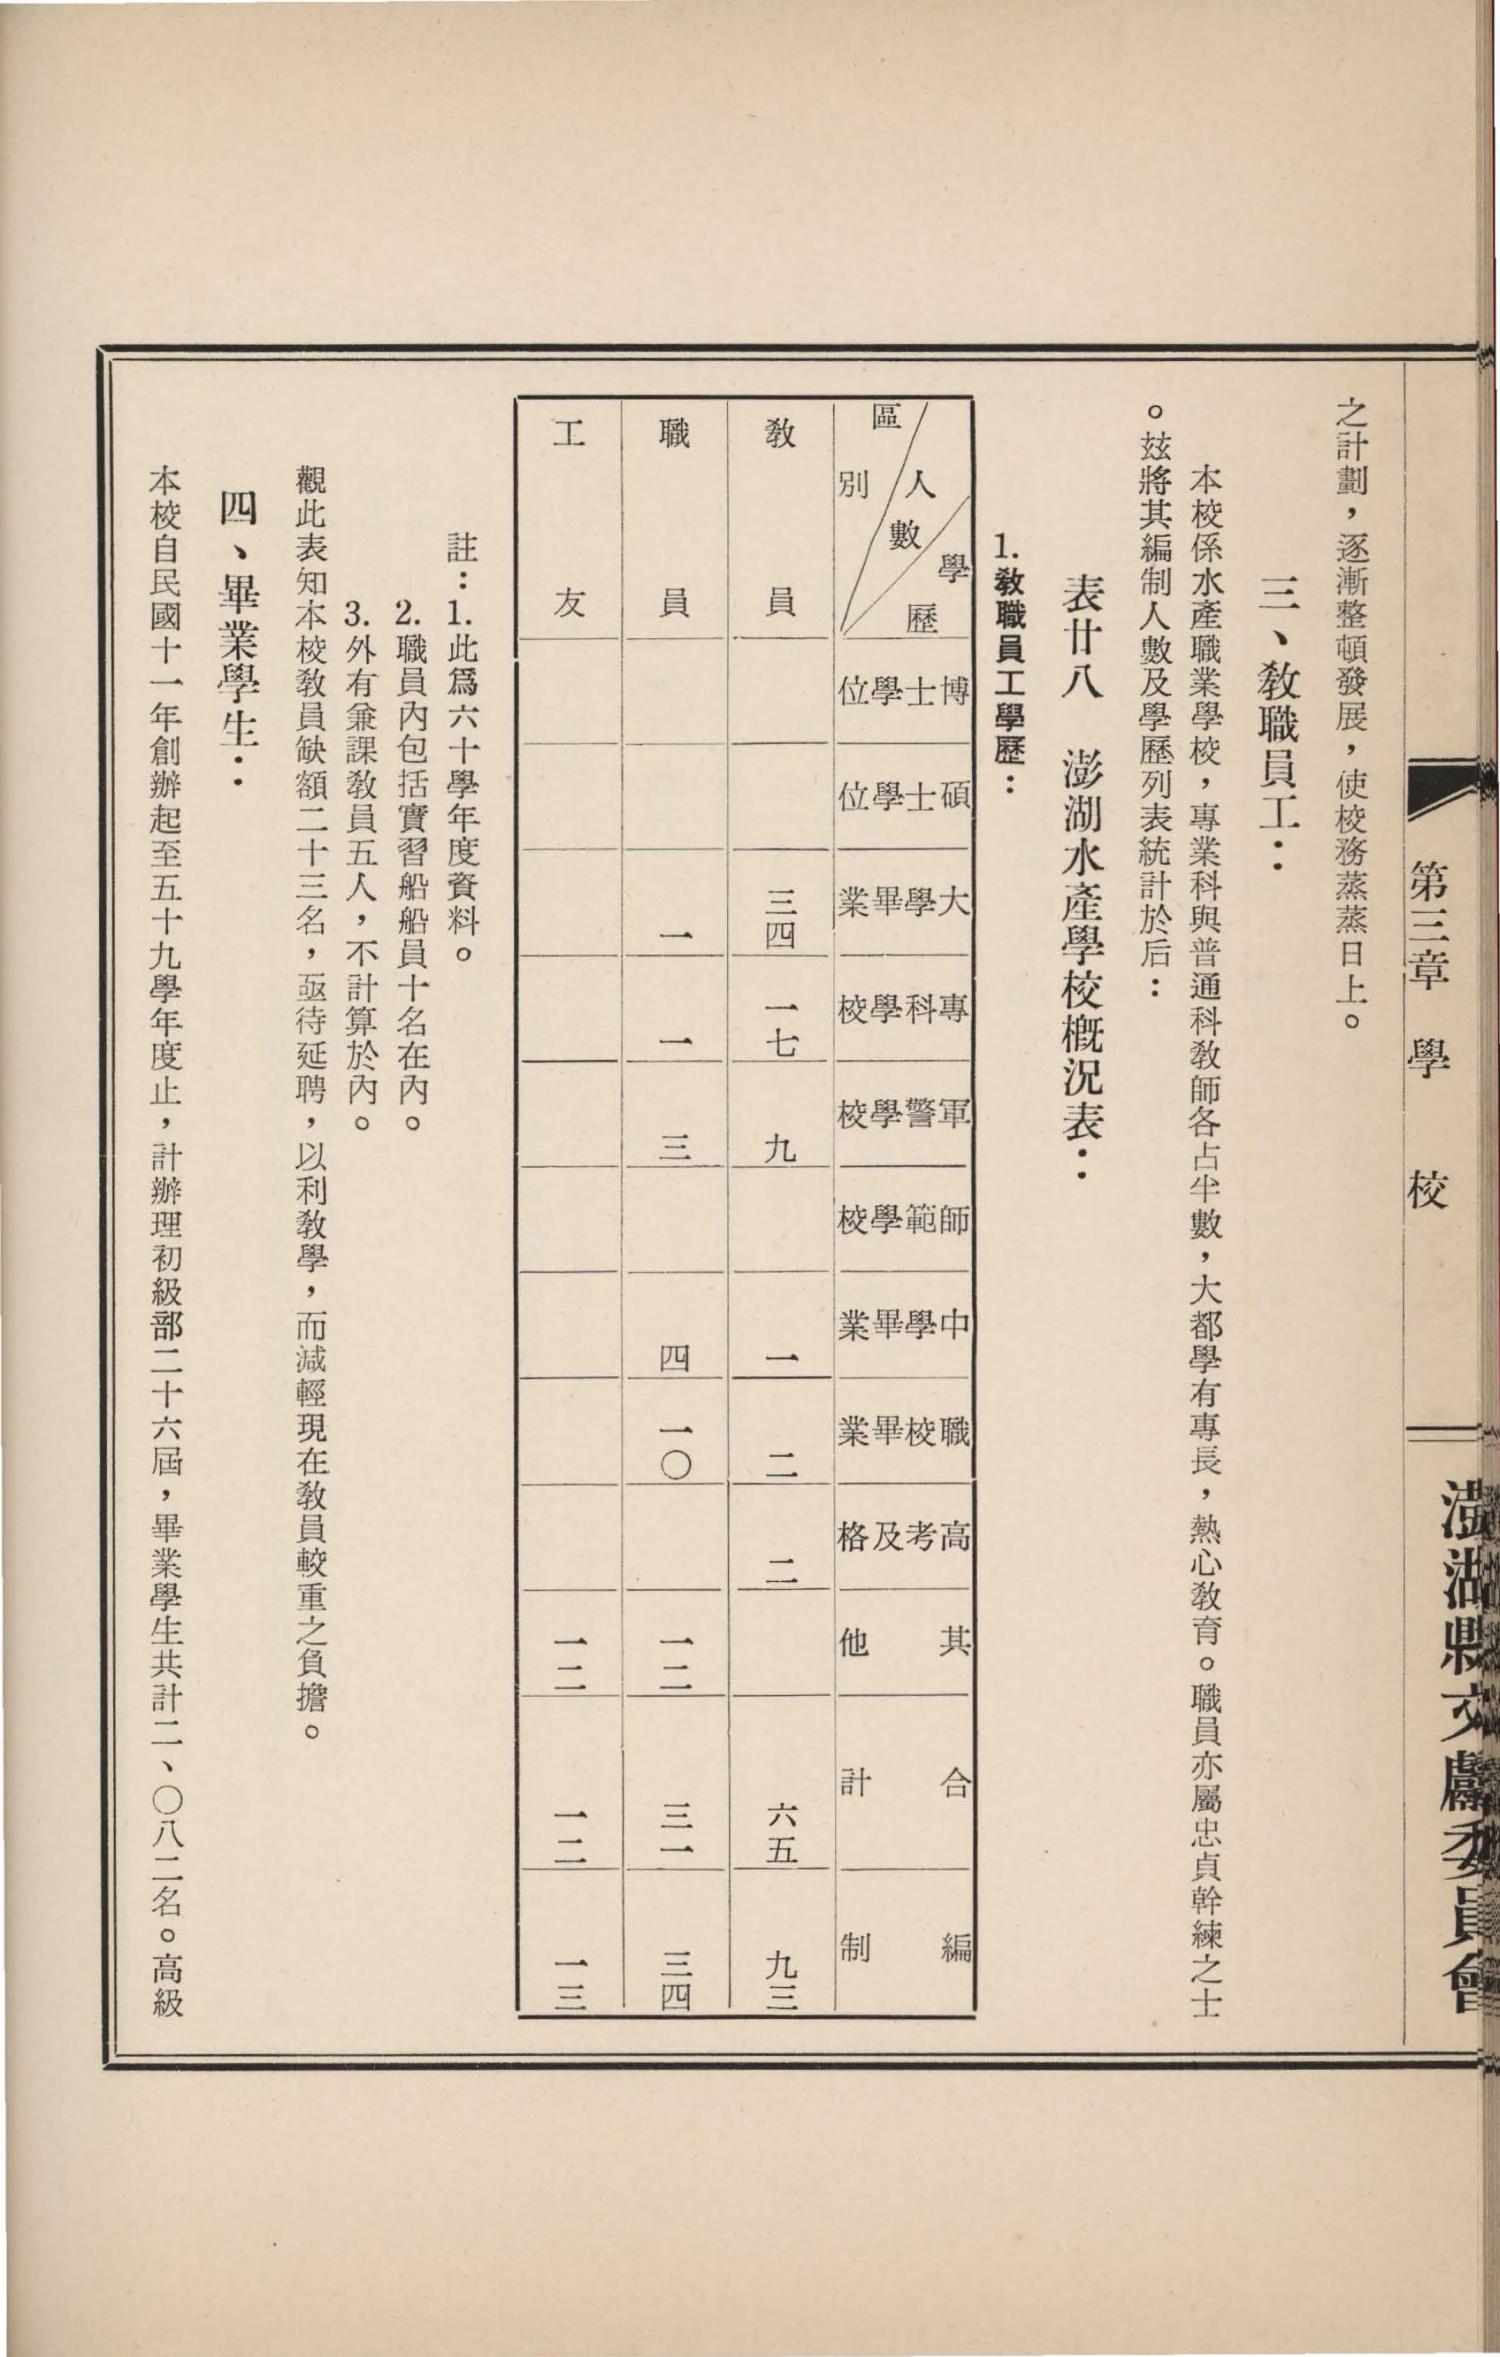 第三章 學 校
澎湖縣文獻委員會
之計劃，逐漸整頓發展，使校務蒸蒸日上。
三、教職員工：
本校係水產職業學校，專業科與普通科教師各占半數，大都學有專長，熱心教育。職員亦屬忠貞幹練之士
。茲將其編制人數及學歷列表統計於后：
表廿八 澎湖水產學校概況表：
1.教職員工學歷：
區別 人數 學歷 博士學位 碩士學位 大學畢業 專科學校 軍警學校 師範學校 中學畢業 職校畢業 高考及格 其他 合計 編制
教員 三四 一七 九 一 二 二 六五 九三
職員 一 一 三 四 一〇 一二 三一 三四
工友 一二 一二 一三
註：1.此為六十學年度資料。
2.職員內包括實習船船員十名在內。
3.外有兼課教員五人，不計算於內。
觀此表知本校教員缺額二十三名，亟待延聘，以利教學，而減輕現在教員較重之負擔。
四、畢業學生：
本校自民國十一年創辦起至五十九學年度止，計辦理初級部二十六屆，畢業學生共計二、〇八二名。高級